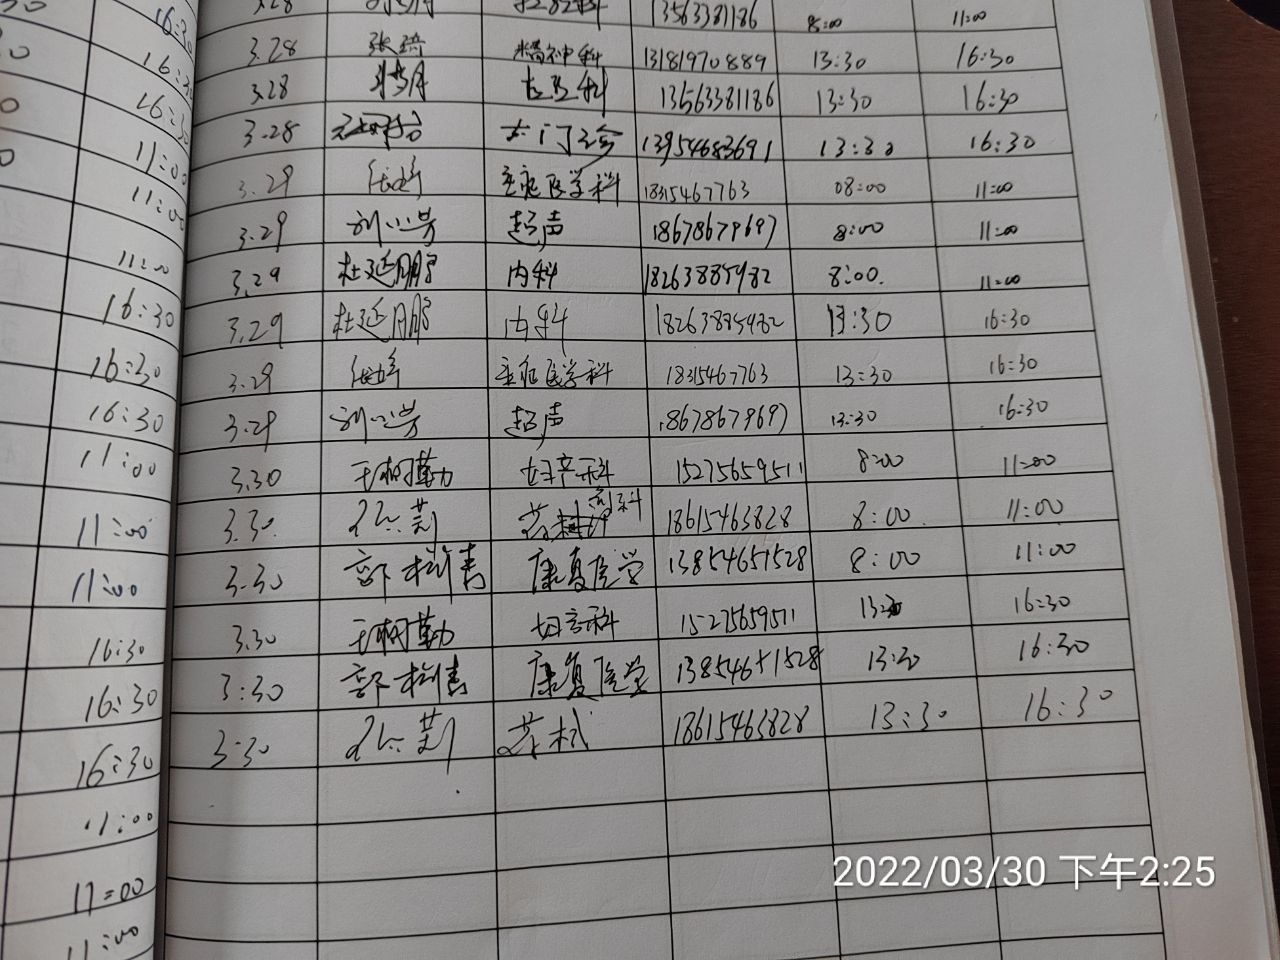 16:30
16:30
16:30
11:00
11:00
11:00
16:30
16:30
16:30
11:00
11:00
11:00
16:30
16:30
16:30
11:00
11:00
11:00
3.28 13563381186 8:00 11:00
3.28 张琦 精神科 13181970889 13:30 16:30
3.28 13563381186 13:30 16:30
3.28 门诊 13954683691 13:30 16:30
3.29 重症医学科 18315467763 08:00 11:00
3.29 刘心芳 超声 18678679697 8:00 11:00
3.29 杜延鹏 内科 18263885982 8:00 11:00
3.29 杜延鹏 内科 18263885982 13:30 16:30
3.29 重症医学科 18315467763 13:30 16:30
3.29 刘心芳 超声 18678679697 13:30 16:30
3.30 王树勤 妇产科 15275659511 8:00 11:00
3.30 18615463828 8:00 11:00
3.30 康复医学 13854651528 8:00 11:00
3.30 王树勤 妇产科 15275659511 13:30 16:30
3:30 康复医学 13854651528 13:30 16:30
3:30 18615463828 13:30 16:30
2022/03/30 下午2:25